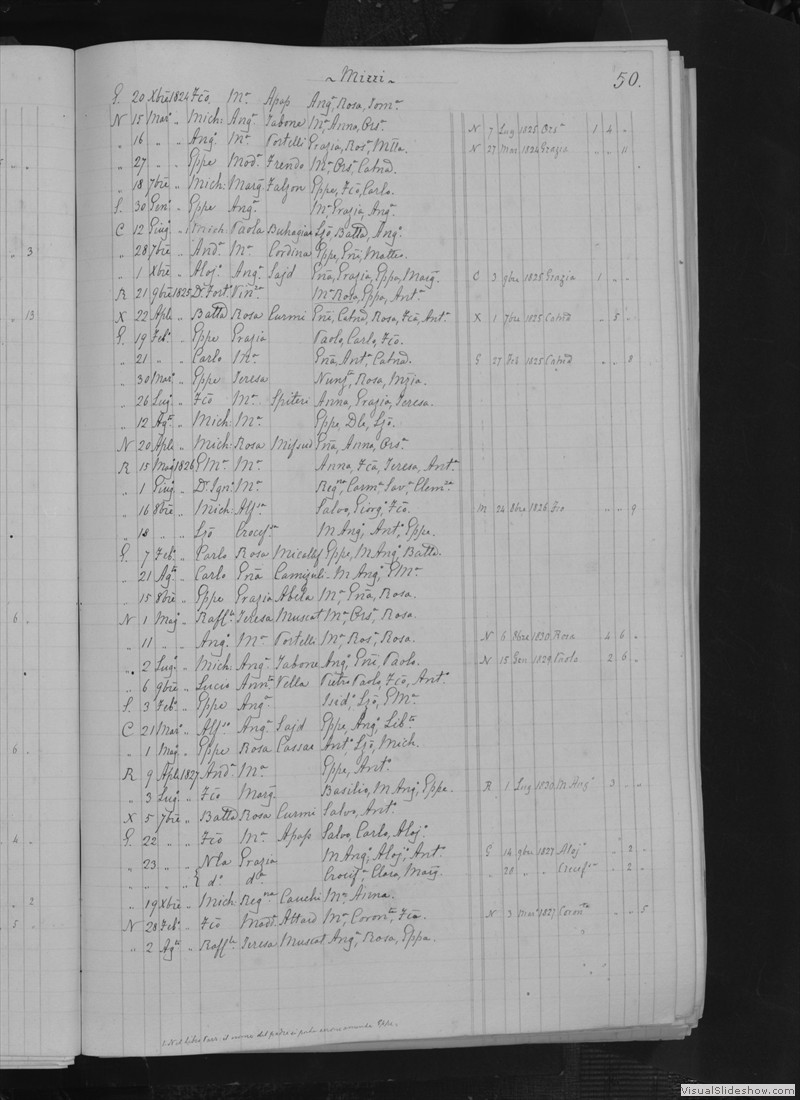 ~ Mizzi ~ 50.
G. 20 Xbre 1824 Fco. Ma Apap Anga, Rosa, Toma.
N 15 Maro „ Mich: Anga. Tabone Ma, Anna, Orsa. N 7 Lug 1825 Orsa 1 4 „
„ 16 „ „ Ango. Ma. Portelli Grazia, Rosa, Mlla. N 27 Mar 1824 Grazia „ „ 11
„ 27 „ „ Gppe Mada. Frendo Ma, Orsa, Catnd.
„ 18 7bre „ Mich: Marg. Falzon Gppe, Fco, Carlo.
S. 30 Geno „ Gppe Anga. Ma Grazia, Anga.
C 12 Giug. „ Mich: Paola Buhagiar Ljo, Batta, Ango.
„ 3 „ 28 7bre „ Anda. Ma. Cordina Gppe, Gni, Matteo.
„ 1 Xbre „ Aloj. Anga. Sajd Gna, Grazia, Gppa, Marg. C 3 9bre 1825 Grazia 1 „ „
R 21 9bre 1825 Dr. Forto. Vin Ma Rosa, Gppa, Anta
„ 13 X 22 Aple „ Batta Rosa Curmi Gni, Catnd, Rosa, Fca, Anta. X 1 7bre 1825 Catnd „ 5 „
G. 19 Febo. „ Gppe Grazia Paolo, Carlo, Fco.
„ 21 „ „ Carlo Ma. Gna, Anta. Catnd. G 27 Feb 1825 Catnd „ „ 8
„ 30 Maro. „ Gppe Teresa Nunza, Rosa, Mzia.
„ 26 Lug. „ Fco Ma. Spiteri Anna, Grazia, Teresa.
„ 12 Ago. „ Mich: Ma. Gppa, Dla, Ljo.
N 20 Aple „ Mich: Rosa Mifsud Gna, Anna, Orsa.
R 15 Mag 1826 GMa. Ma. Anna, Fca, Teresa, Anta
„ 1 Giug. „ Dr. Igno. Ma. Regna Carma Sava. Clem
„ 16 8bre „ Mich: Alf Salvo, Giorgo, Fco. M 24 8bre 1826 Fco „ „ 9
„ 18 „ „ Ljo Crocef M Anga, Anto, Gppa.
G. 7 Febo. „ Carlo Rosa Micallef Gppe, M Anga, Batta.
„ 21 Ago. „ Carlo Gna Camiguli M Anga, GMa.
„ 15 8bre „ Gppe Grazia Abela Ma, Gna, Rosa.
6 „ N 1 Mag. „ Raffle. Teresa Muscat Ma, Orsa, Rosa.
„ 11 „ „ Ango. Ma. Portelli Ma, Rosa, Rosa. N 6 8bre 1830 Rosa 4 6 „
„ 2 Lug. „ Mich: Anga. Tabone Anga, Gni, Paolo. N 15 Gen 1829 Paolo 2 6 „
„ 6 9bre „ Lucio Annta Vella Pietro Paolo, Fco, Anto.
S. 3 Febo. „ Gppe Anga. Isido, Ljo, GMa.
C 21 Maro. „ Alf Anga Sajd Gppe, Anga, Lib
6 „ „ 1 Mag. „ Gppe Rosa Cassar Anta, Ljo, Mich.
R 9 Aple 1827 Anda. Ma Gppe, Anto.
„ 3 Lug. „ Fco Marg. Basilio, M Anga, Gppa. R 1 Lug 1830 M Anga 3 „ „
X 5 7bre „ Batta Rosa Curmi Salvo, Anto.
„ 4 „ G. 22 „ „ Fco Ma. Apap Salvo, Carlo, Aloj.
„ 23 „ „ Nla Grazia M Anga, Alojo, Anta. G 14 9bre 1827 Alojo „ 2 „
„ „ „ „ { do. dta. Crocef Clara, Marg. „ 20 „ „ Crocef „ 2 „
„ 2 „ 19 Xbre „ Mich: Regna Cauchi Ma. Anna.
„ 5 „ N 28 Febo. „ Fco Mada. Attard Ma, Coronta, Fca. N 3 Maro 1827 Coronta „ „ 5
„ 2 Ago. „ Raffle. Teresa Muscat Anga, Rosa, Gppa.
VisualSlideshow.com